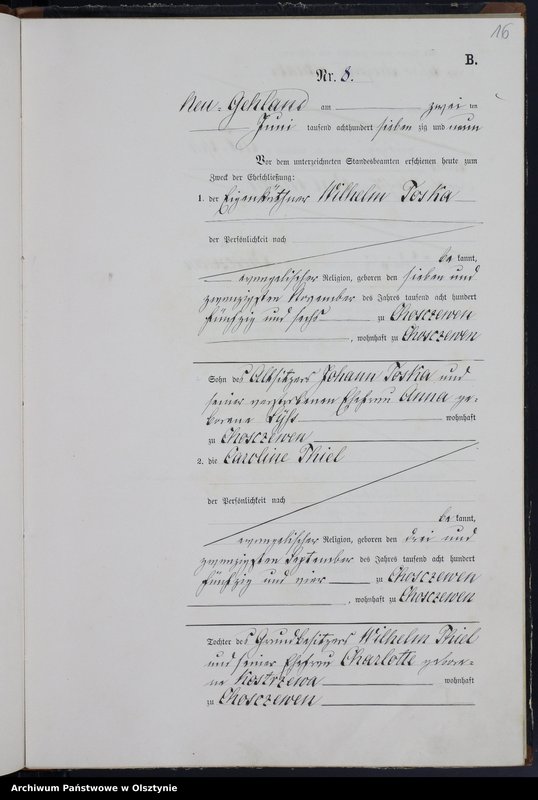 16
B.
Nr. 8.
Neu-Gehland am zwei ten
Juni tausend achthundert sieben zig und neun
Vor dem unterzeichneten Standesbeamten erschienen heute zum
Zweck der Eheschließung:
1. der Eigenkäthner Wilhelm Toska
der Persönlichkeit nach
be kannt,
evangelischer Religion, geboren den sieben und
zwanzigsten November des Jahres tausend acht hundert
fünfzig und sechs zu Chosczewen
, wohnhaft zu Chosczewen
Sohn des Altsitzers Johann Toska und
seiner verstorbenen Ehefrau Anna ge-
borene wohnhaft
zu Chosczewen
2. die Caroline Thiel
der Persönlichkeit nach
be kannt,
evangelischer Religion, geboren den drei und
zwanzigsten September des Jahres tausend acht hundert
fünfzig und vier zu Chosczewen
, wohnhaft zu Chosczewen
Tochter des Grundbesitzers Wilhelm Thiel
und seiner Ehefrau Charlotte gebore-
ne Kostrzewa wohnhaft
zu Chosczewen
Archiwum Państwowe w Olsztynie